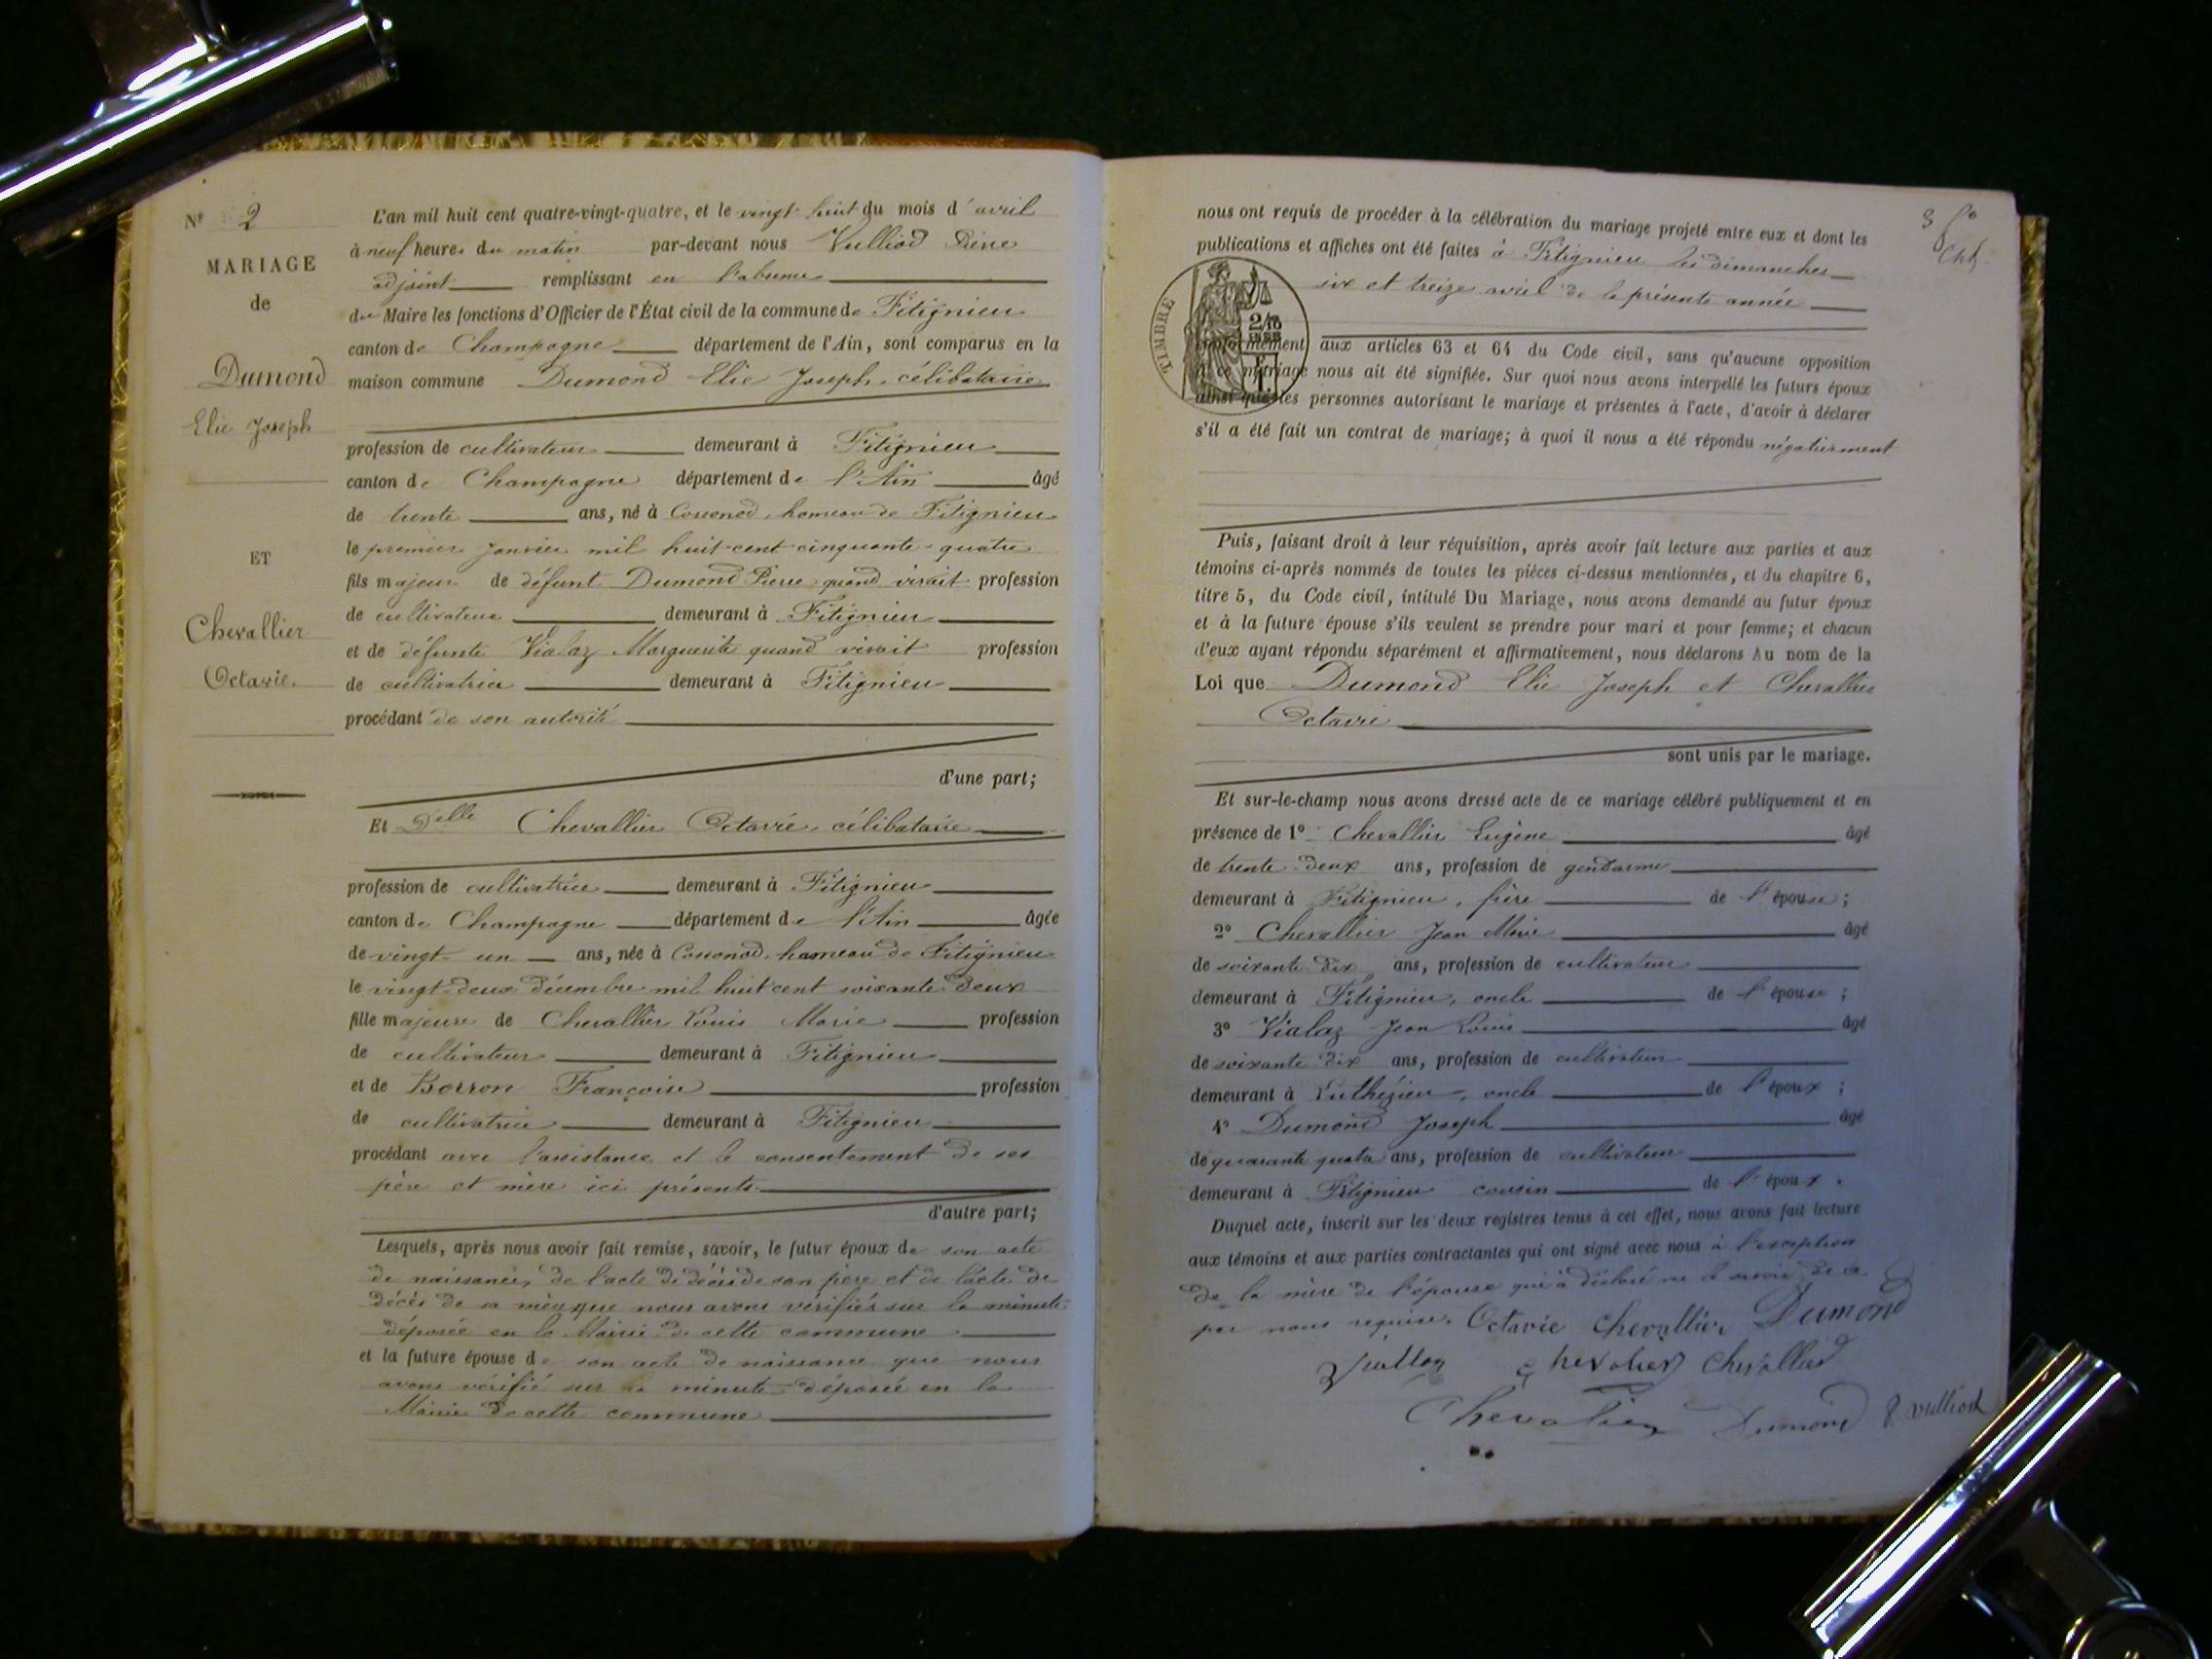 N° 2
MARIAGE
de
Dumond
Elie Joseph
ET
Chevallier
Octavie.
L'an mil huit cent quatre-vingt-quatre, et le vingt huit du mois d'avril
à neuf heures du matin par-devant nous Vulliod Pierre
adjoint remplissant en l'absence
du Maire les fonctions d'Officier de l'État civil de la commune de Fitignieu
canton de Champagne département de l'Ain, sont comparus en la
maison commune Dumond Elie Joseph, célibataire
profession de cultivateur demeurant à Fitignieu
canton de Champagne département de l'Ain âgé
de trente ans, né à hameau de Fitignieu
le premier Janvier mil huit cent cinquante-quatre
fils majeur de défunt Dumond Pierre quand vivait profession
de cultivateur demeurant à Fitignieu
et de défunte Vialaz Marguerite quand vivait profession
de cultivatrice demeurant à Fitignieu
procédant de son autorité
d'une part;
Et Delle Chevallier Octavie, célibataire
profession de cultivatrice demeurant à Fitignieu
canton de Champagne département de l'Ain âgée
de vingt-un ans, née à hameau de Fitignieu
le vingt-deux décembre mil huit cent soixante-deux
fille majeure de Chevallier Louis Marie profession
de cultivateur demeurant à Fitignieu
et de Borron Françoise profession
de cultivatrice demeurant à Fitignieu
procédant avec l'assistance et le consentement de ses
père et mère ici présents.
d'autre part;
Lesquels, après nous avoir fait remise, savoir, le futur époux de son acte
de naissance, de l'acte de décès de son père et de l'acte de
décès de sa mère que nous avons vérifiés sur la minute
déposée en la Mairie de cette commune
et la future épouse de son acte de naissance que nous
avons vérifié sur la minute déposée en la
Mairie de cette commune
3 fo
nous ont requis de procéder à la célébration du mariage projeté entre eux et dont les
publications et affiches ont été faites à Fitignieu les dimanches
six et treize avril de la présente année
TIMBRE
conformément aux articles 63 et 64 du Code civil, sans qu'aucune opposition
à ce mariage nous ait été signifiée. Sur quoi nous avons interpellé les futurs époux
ainsi que les personnes autorisant le mariage et présentes à l'acte, d'avoir à déclarer
s'il a été fait un contrat de mariage; à quoi il nous a été répondu négativement
Puis, faisant droit à leur réquisition, après avoir fait lecture aux parties et aux
témoins ci-après nommés de toutes les pièces ci-dessus mentionnées, et du chapitre 6,
titre 5, du Code civil, intitulé Du Mariage, nous avons demandé au futur époux
et à la future épouse s'ils veulent se prendre pour mari et pour femme; et chacun
d'eux ayant répondu séparément et affirmativement, nous déclarons Au nom de la
Loi que Dumond Elie Joseph et Chevallier
Octavie
sont unis par le mariage.
Et sur-le-champ nous avons dressé acte de ce mariage célébré publiquement et en
présence de 1° Chevallier Eugène âgé
de trente-deux ans, profession de gendarme
demeurant à Fitignieu, frère de l'épouse;
2° Chevallier Jean Marie âgé
de soixante-dix ans, profession de cultivateur
demeurant à Fitignieu, oncle de l'épouse;
3° Vialaz Jean Louis âgé
de soixante dix ans, profession de cultivateur
demeurant à Luthézieu, oncle de l'époux;
4° Dumond Joseph âgé
de quarante quatre ans, profession de cultivateur
demeurant à Fitignieu cousin de l'époux.
Duquel acte, inscrit sur les deux registres tenus à cet effet, nous avons fait lecture
aux témoins et aux parties contractantes qui ont signé avec nous à l'exception
de la mère de l'épouse qui a déclaré ne le savoir de ce
par nous requise. Octavie Chevallier Dumond
Chevalier Chevallier
Chevalier Dumond P. Vulliod